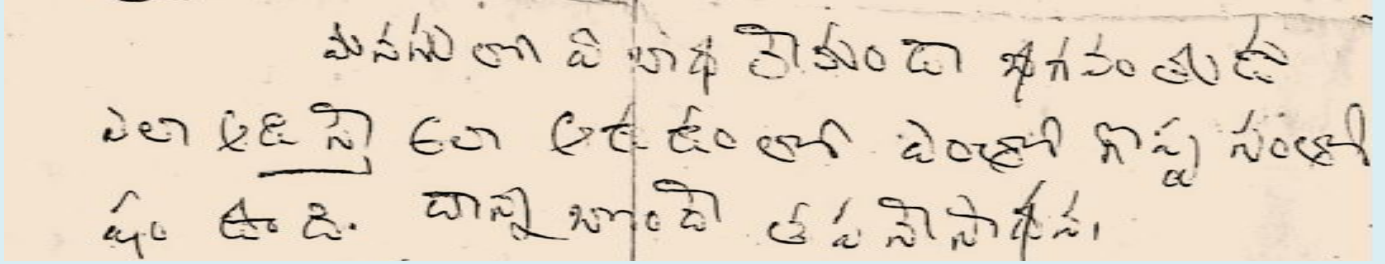 మనసులో ఏ బాధ లేకుండా భగవంతుడు
ఎలా ఆడిస్తే అలా ఆడడంలో ఎంతో గొప్ప సంతో
షం ఉంది. దాన్ని పొందే తపనే సాధన.